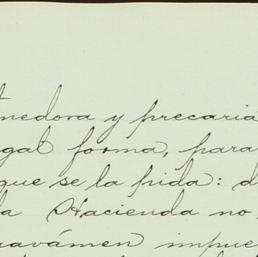 tenedora y precaria
gal forma, para
que se la pida: d
la Hacienda no
ravámen impue